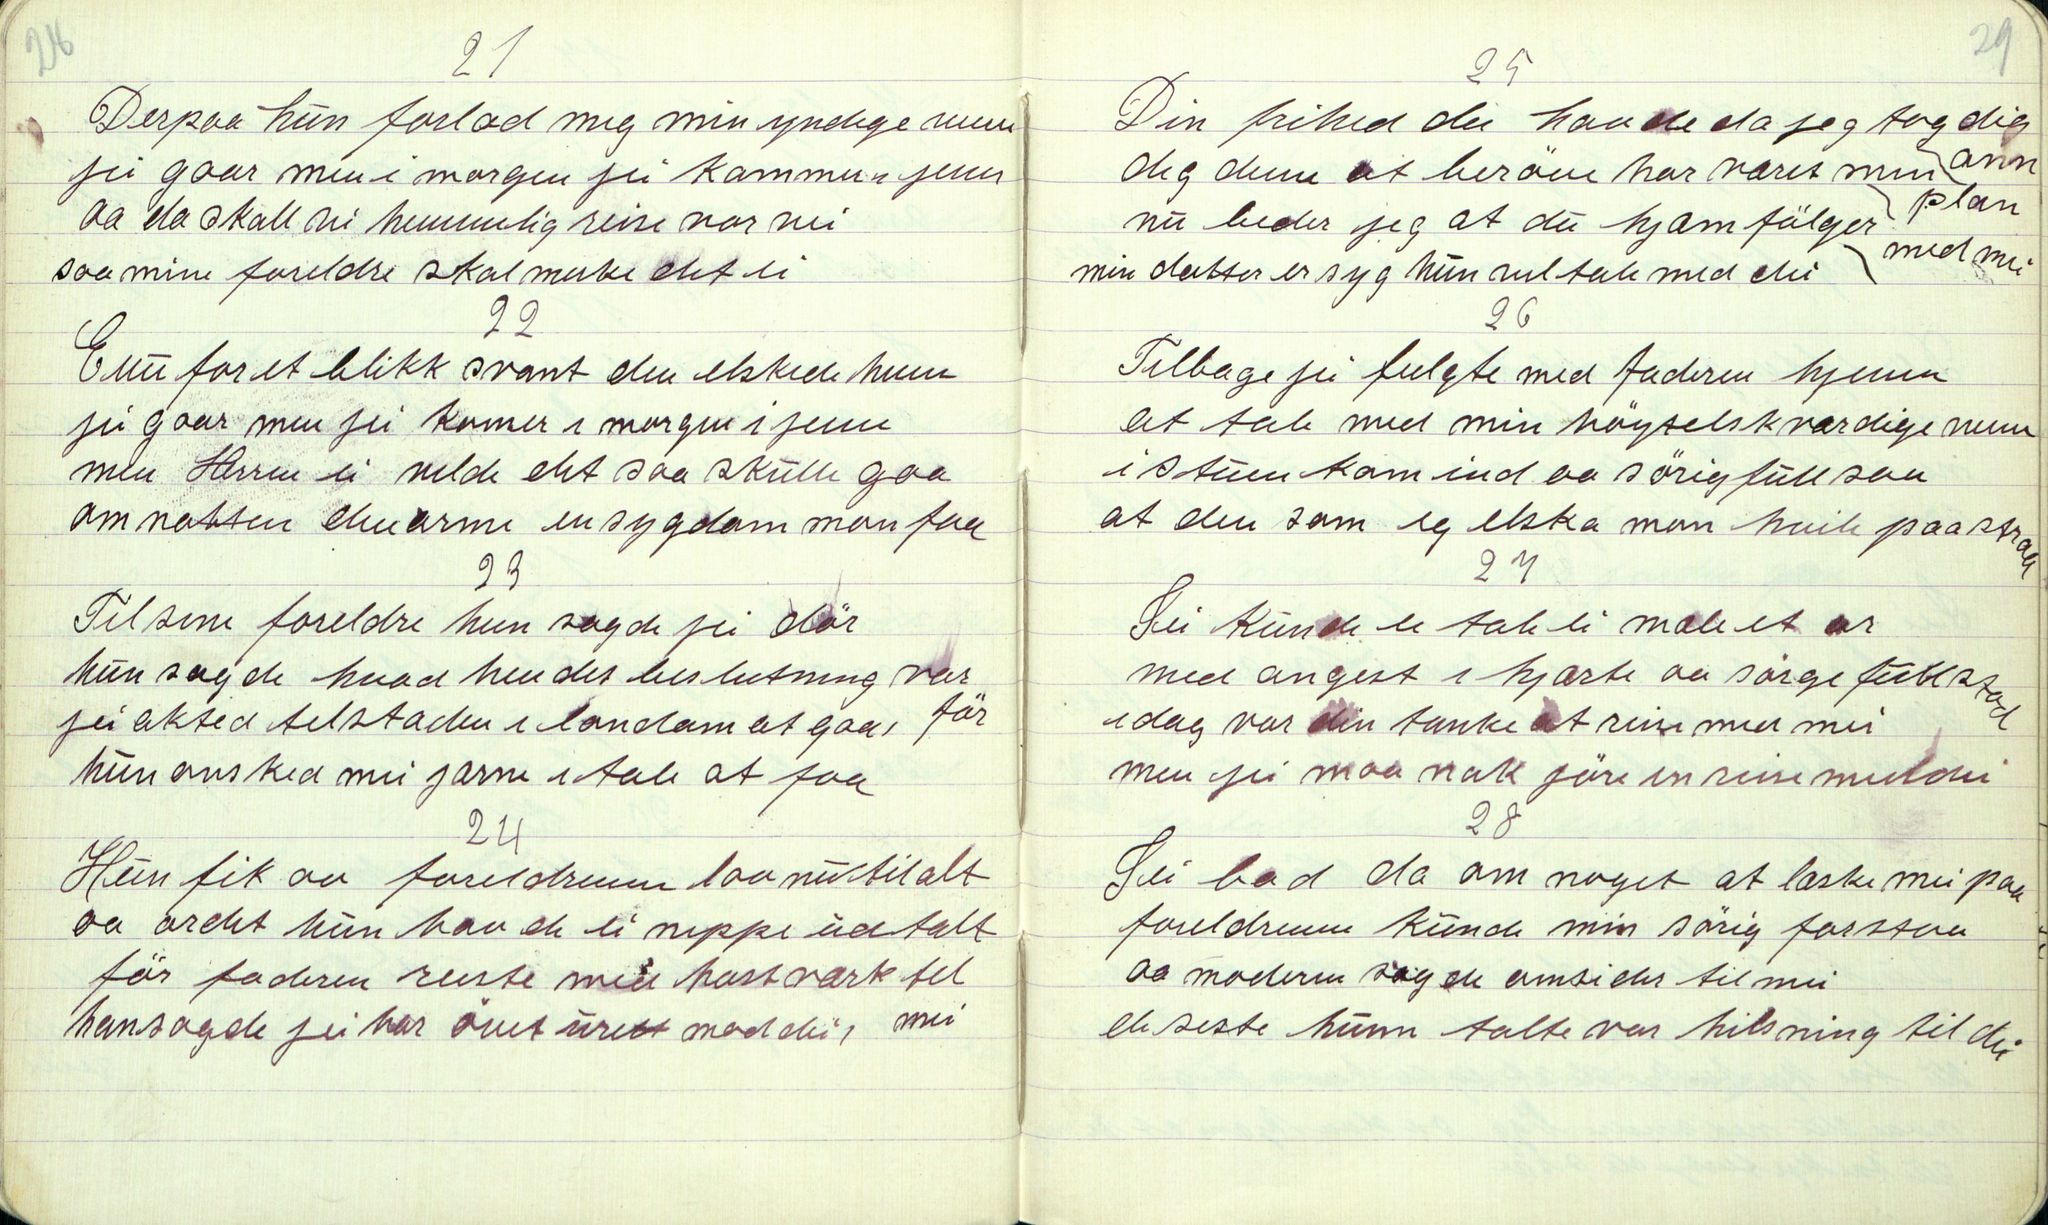 28
21
Derpaa hün forlod meg min yndige venn
jei gaar men i morgen jei kommer ijenn
oa da skall vi hemmelig reise vor vei
saa mine foreldre skal merke det ei
22
Enü for et blikk svant den elskede henn
jei gaar men jei komer i morgen ijenn
men Herren ei vilde det saa skülle gaa
om natten den arme en sygdom mon faa
23
Til sine foreldre hun sagde jei dör
hün sagde hvad hendes beslutning var för
jei akted til staden i london at gaa
hün ønsked mei jarne i tale at faa
24
Hün fik av foreldrenne lov nü til alt
oa ordet hün havde ei neppe üdtalt
för faderen reiste med hastværk til mei
han sagde jei har övet ürett mod dei
29
25
Din frihed der havde da jeg tog dig ann
deg denne at beröve har varet min plan
nü beder jeg at dü hjam fölger med mei
min datter er syg hün vil tale med dei
26
Tilbage jei fulgte med faderen hjemm
at tale med min höytelskværdige venn
i stüen kom ind oa sörigfüll saa
at den som eg elska mon hvile paa straa
27
Jei künde ei tale ei mæle et or
med angest i hjarte oa sörgefüll stod
i dag var din tanke at reise med mei
men jei maa nok jöre en reise med dei
28
Jei bad da om noget at læske mei paa
foreldrenne künde min sörig forstaa
oa moderen sagde omsider til mei
de seste hünn talte var hilsning til dei